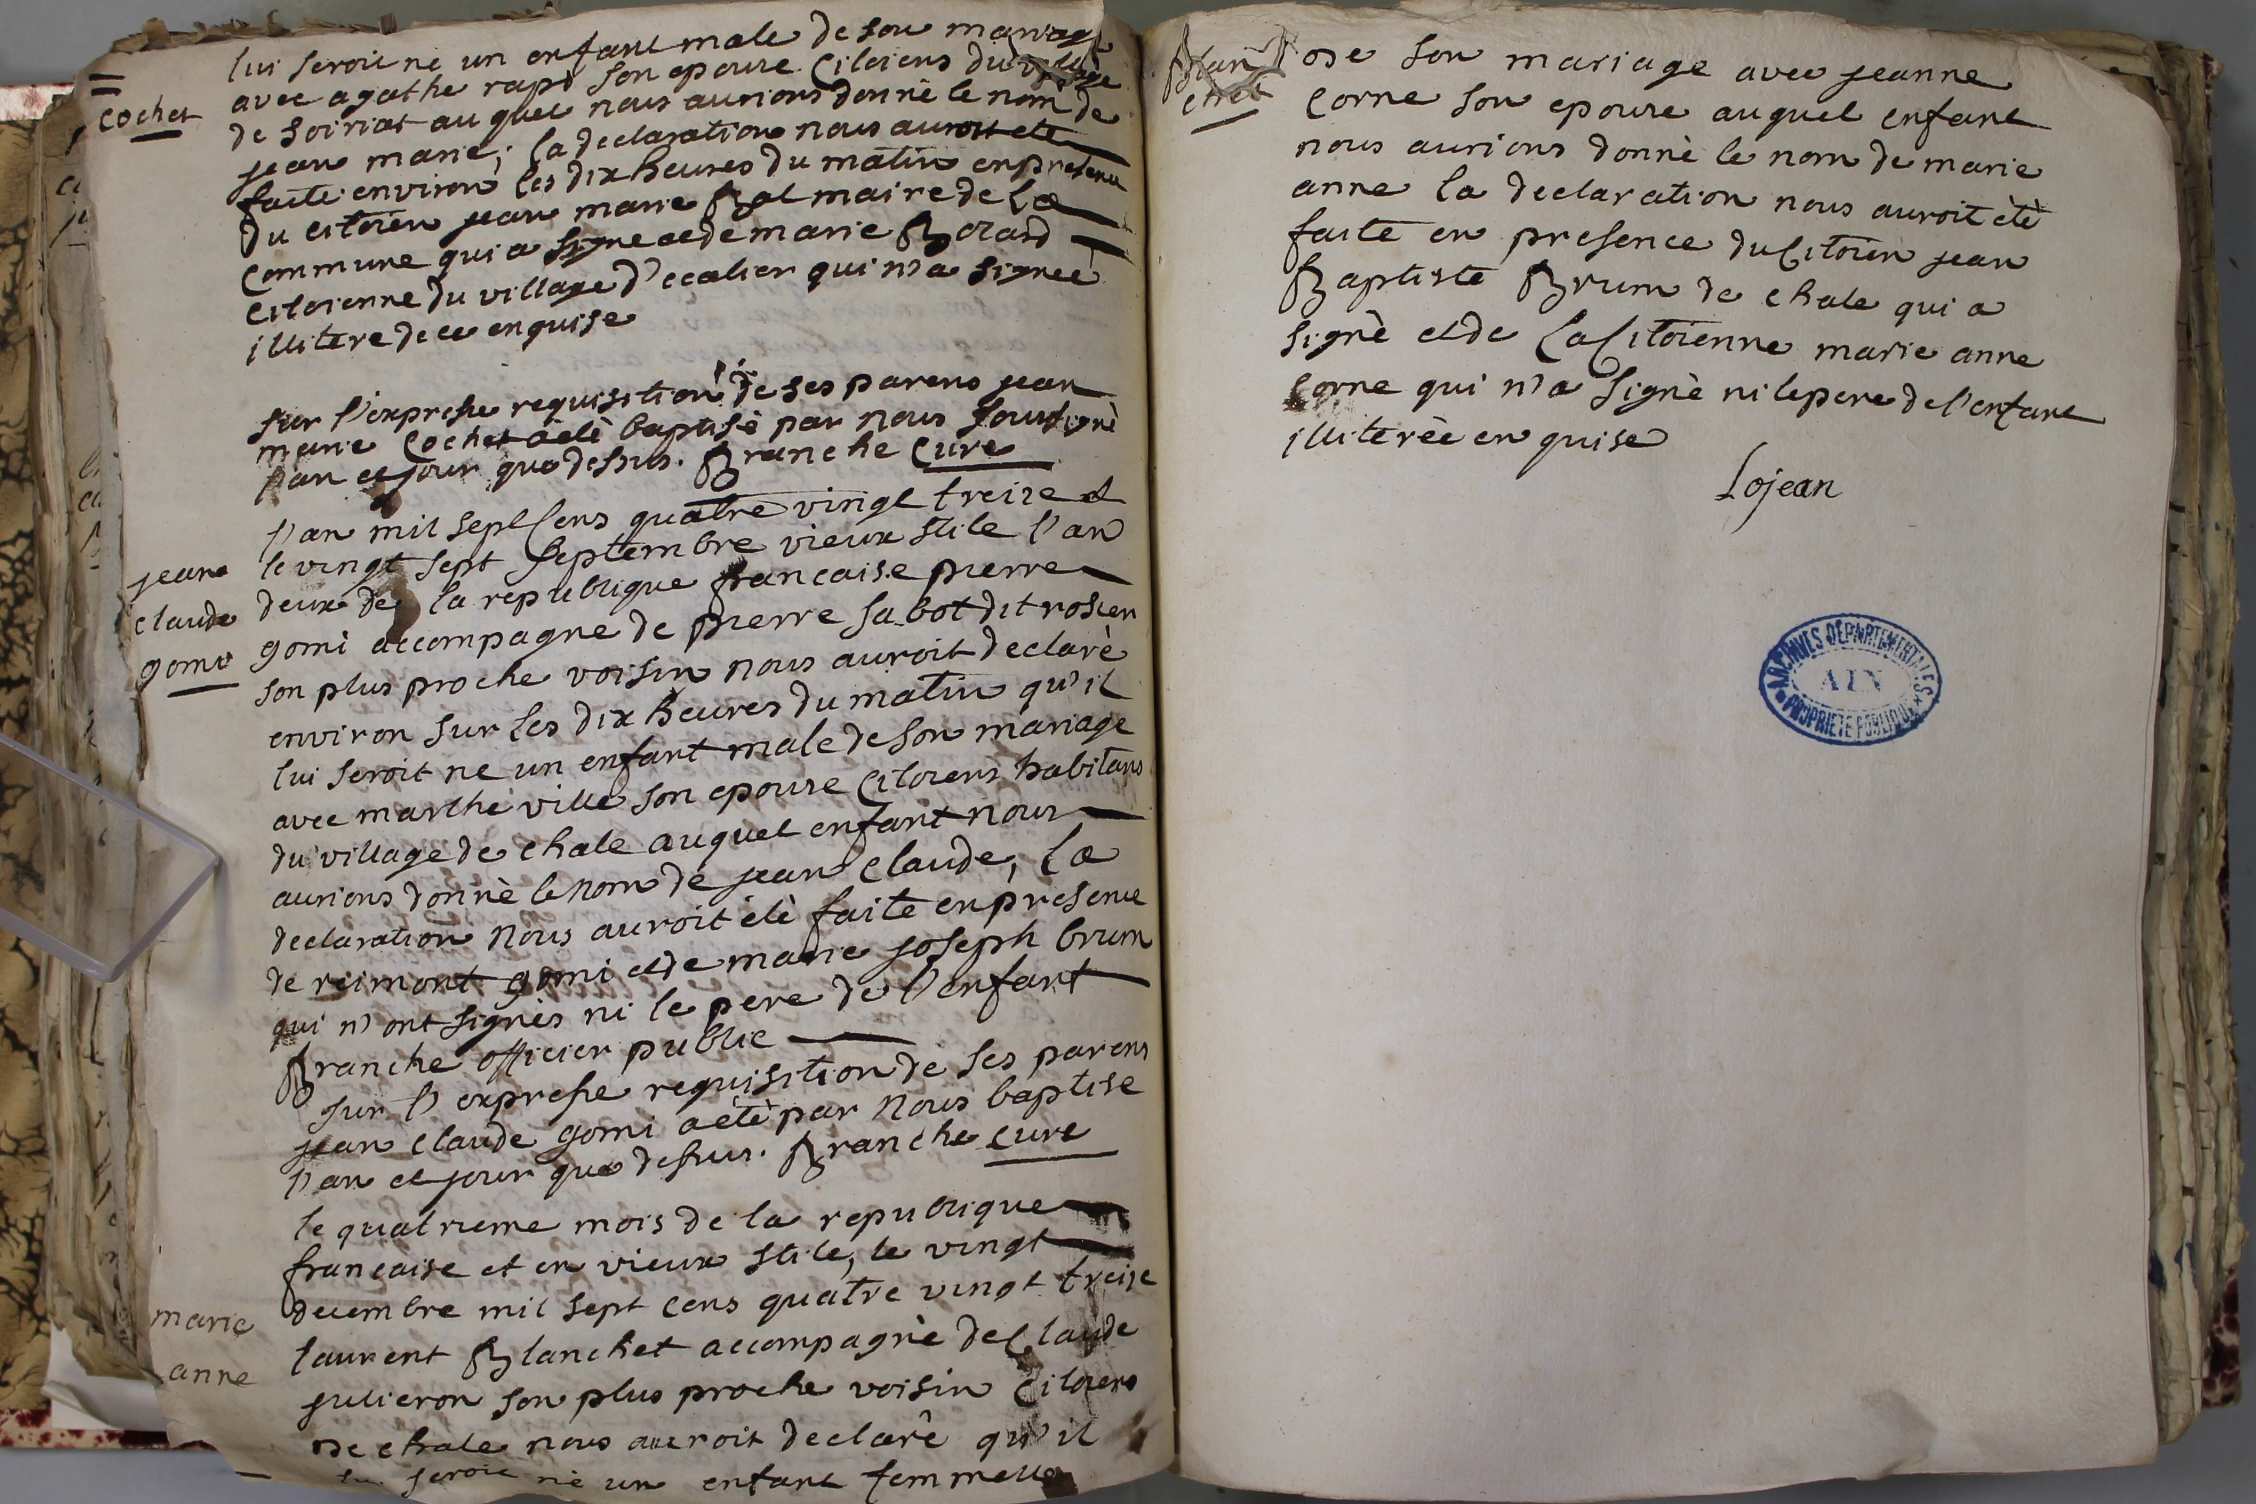 lui seroit ne un enfant male de son mariage
avec agathe rapi son epouse Citoiens du village
Cochet
de soiriat auquel nous aurions donnè le nom de
jean marie; la declaration nous auroit ete
faite environ les dix heures du matin en presence
du citoien jean marie Bal maire de La
Commune qui a signe et de marie Bozard
Citoienne du village d'ecalier qui n'a signeé
illitere de ce enquise
sur l'expresse requisition de ses parens jean
marie Cochet a etè baptisè par nous soussignè
l'an et jour que dessus. Branche Cure
l'an mil sept Cens quatre vingt treize et
le vingt sept Septembre vieux stile l'an
jean
deux de la republique francaise pierre
claude
gomi accompagne de pierre sabot dit rosier
gomi
son plus proche voisin nous auroit declarè
environ sur les dix heures du matin qu'il
lui seroit ne un enfant male de son mariage
avec marthe ville son epouse Citoiens habitans
du village de chale auquel enfant nous
aurions donnè le nom de jean Claude, La
declaration nous auroit étè faite en presence
de reimont gomi et de marie joseph brum
qui n'ont signès ni le pere de l'enfant
Branche officier public
sur l'expresse requisition de ses parens
jean Claude gomi a étè par nous baptise
l'an et jour que dessus. Branche cure
le quatrieme mois de la republique
francaise et en vieux stile, le vingt
decembre mil sept Cens quatre vingt treize
marie
laurent Blanchet accompagnè de Claude
anne
julieron son plus proche voisin Citoiens
de chale nous auroit declarê qu'il
lui seroit ne un enfant femmelle
Blan
chet
de son mariage avec jeanne
Corne son epouse auquel enfant
nous aurions donnè le nom de marie
anne la declaration nous auroit étè
faite en presence du Citoien jean
Baptiste Brum de chale qui a
signè et de La Citoienne marie anne
Corne qui n'a signè ni le pere de l'enfant
illiterèe enquise
Lojean
ARCHIVES DÉPARTEMENTALES
AIN
PROPRIÉTÉ PUBLIQUE